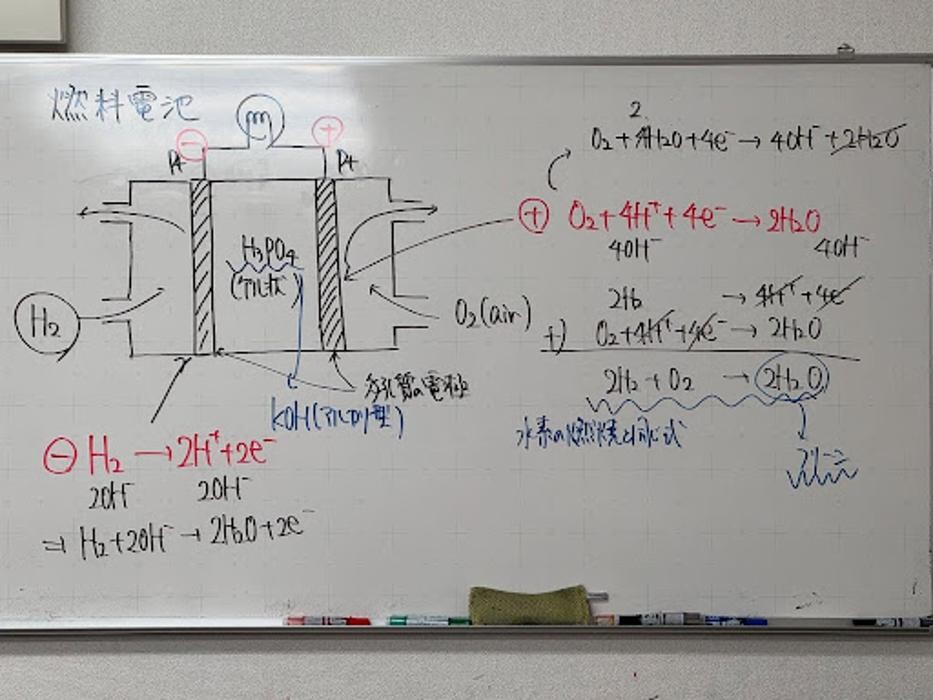 燃料電池
⊖
⊕
Pt
Pt
H₃PO₄
H₂
O₂(air)
多孔質の電極
KOH(アルカリ型)
⊖ H₂ → 2H⁺+2e⁻
2OH⁻ 2OH⁻
⇒ H₂+2OH⁻ → 2H₂O+2e⁻
2
O₂+4H₂O+4e⁻ → 4OH⁻+2H₂O
⊕ O₂+4H⁺+4e⁻ → 2H₂O
4OH⁻ 4OH⁻
2H₂ → 4H⁺+4e⁻
+) O₂+4H⁺+4e⁻ → 2H₂O
2H₂+O₂ → 2H₂O
水素の燃焼と同じ式
クリーン